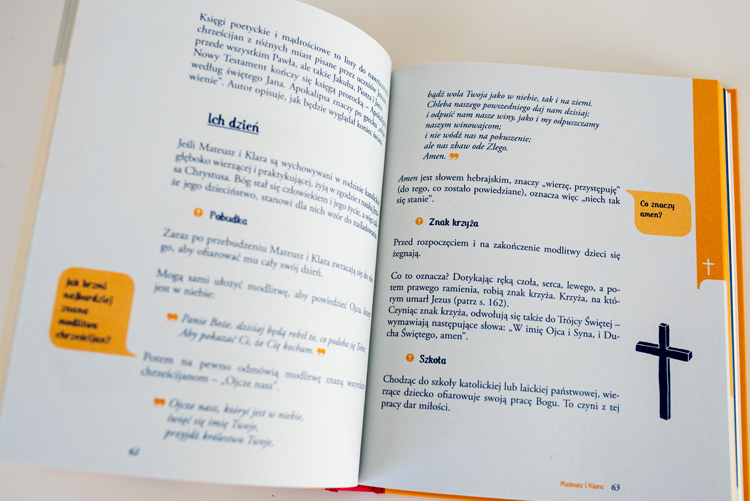 Księgi poetyckie i mądrościowe to listy do
chrześcijan z różnych miast pisane przez uczniów
przede wszystkim Pawła, ale także Jakuba, Piotra i
Nowy Testament kończy się księgą prorocką –
według świętego Jana. Apokalipsa znaczy po grecku
wienie”. Autor opisuje, jak będzie wyglądał koniec świata.
Ich dzień
Jeśli Mateusz i Klara są wychowywani w rodzinie
głęboko wierzącej i praktykującej, żyją w zgodzie z
sa Chrystusa. Bóg stał się człowiekiem i jego życie, a
że jego dzieciństwo, stanowi dla nich wzór do naśladowania.
Pobudka
Zaraz po przebudzeniu Mateusz i Klara zwracają się do
go, aby ofiarować mu cały swój dzień.
Mogą sami ułożyć modlitwę, aby powiedzieć Ojcu, który
jest w niebie:
Panie Boże, dzisiaj będę robił to, co podoba się Tobie.
Aby pokazać Ci, że Cię kocham.
Jak brzmi
najbardziej
znana
modlitwa
chrześcijan?
Potem na pewno odmówią modlitwę znaną wszystkim
chrześcijanom – „Ojcze nasz”.
Ojcze nasz, któryś jest w niebie,
święć się imię Twoje,
przyjdź królestwo Twoje,
62
bądź wola Twoja jako w niebie, tak i na ziemi.
Chleba naszego powszedniego daj nam dzisiaj;
i odpuść nam nasze winy, jako i my odpuszczamy
naszym winowajcom;
i nie wódź nas na pokuszenie;
ale nas zbaw ode Złego.
Amen.
Amen jest słowem hebrajskim, znaczy „wierzę, przystępuję”
(do tego, co zostało powiedziane), oznacza więc „niech tak
się stanie”.
Co znaczy
amen?
Znak krzyża
Przed rozpoczęciem i na zakończenie modlitwy dzieci się
żegnają.
Co to oznacza? Dotykając ręką czoła, serca, lewego, a po-
tem prawego ramienia, robią znak krzyża. Krzyża, na któ-
rym umarł Jezus (patrz s. 162).
Czyniąc znak krzyża, odwołują się także do Trójcy Świętej –
wymawiają następujące słowa: „W imię Ojca i Syna, i Du-
cha Świętego, amen”.
Szkoła
Chodząc do szkoły katolickiej lub laickiej państwowej, wie-
rzące dziecko ofiarowuje swoją pracę Bogu. To czyni z tej
pracy dar miłości.
Mateusz i Klara 63